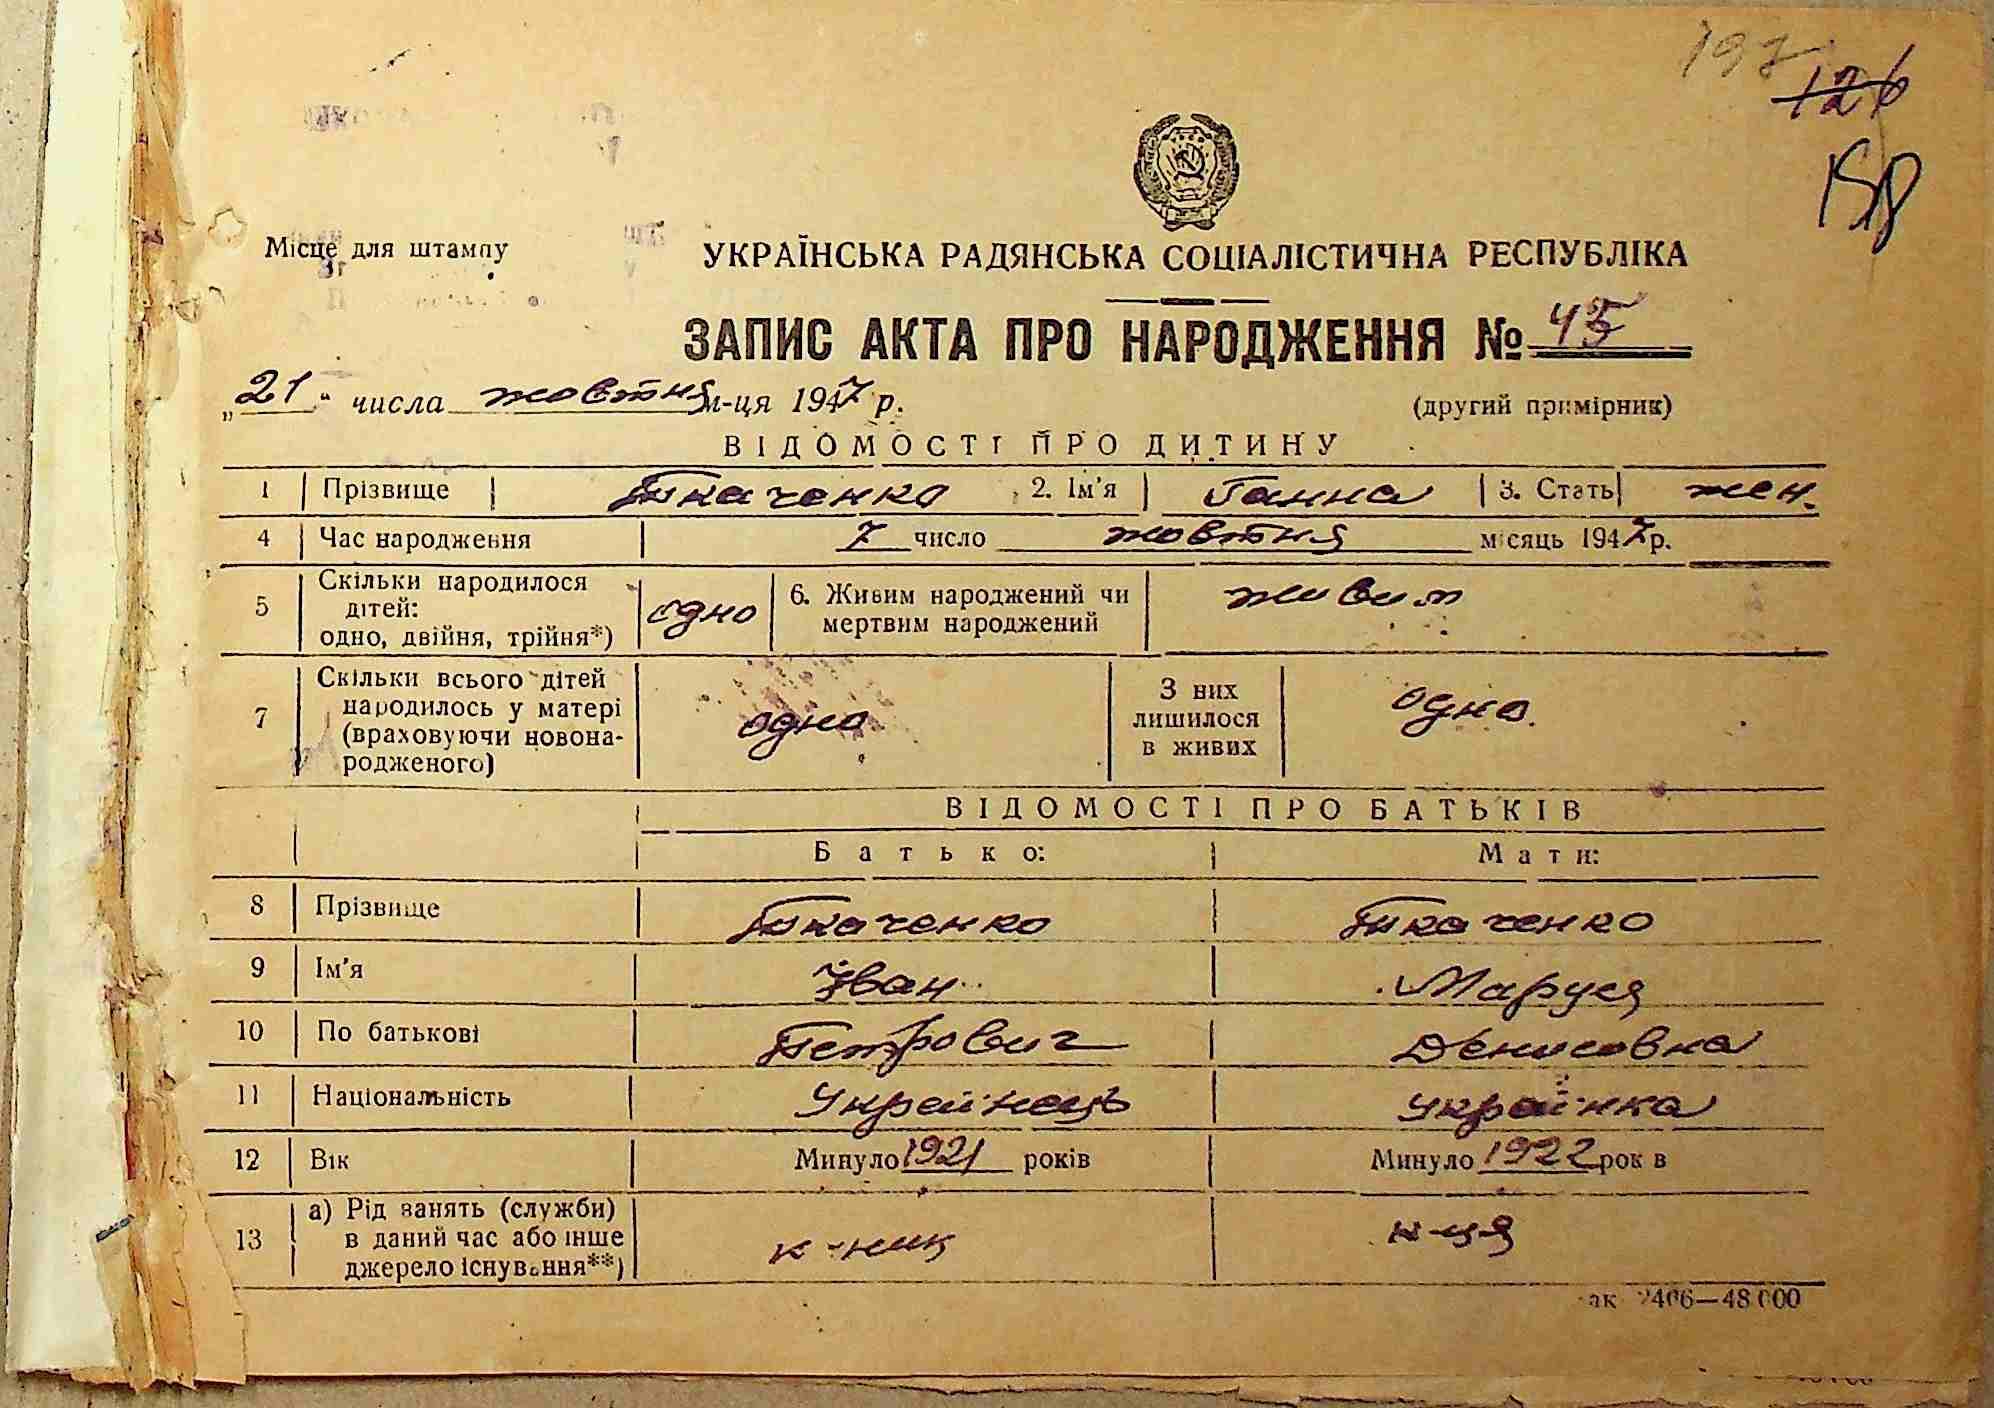 197
126
Місце для штампу
УКРАЇНСЬКА РАДЯНСЬКА СОЦІАЛІСТИЧНА РЕСПУБЛІКА
ЗАПИС АКТА ПРО НАРОДЖЕННЯ № 45
„21“ числа жовтня м-ця 1947 р. (другий примірник)
ВІДОМОСТІ ПРО ДИТИНУ
1 Прізвище Ткаченко 2. Ім'я Ганна 3. Стать жен.
4 Час народження 7 число жовтня місяць 1947 р.
5 Скільки народилося дітей: одно, двійня, трійня*) одно 6. Живим народжений чи мертвим народжений живим
7 Скільки всього дітей народилось у матері (враховуючи новонародженого) одно З них лишилося в живих одно
ВІДОМОСТІ ПРО БАТЬКІВ
Батько: Мати:
8 Прізвище Ткаченко Ткаченко
9 Ім'я Іван Маруся
10 По батькові Петрович Денисовна
11 Національність Українець українка
12 Вік Минуло 1921 років Минуло 1922 рок в
13 а) Рід занять (служби) в даний час або інше джерело існування**) к-ник к-ця
ак 2406—48 000